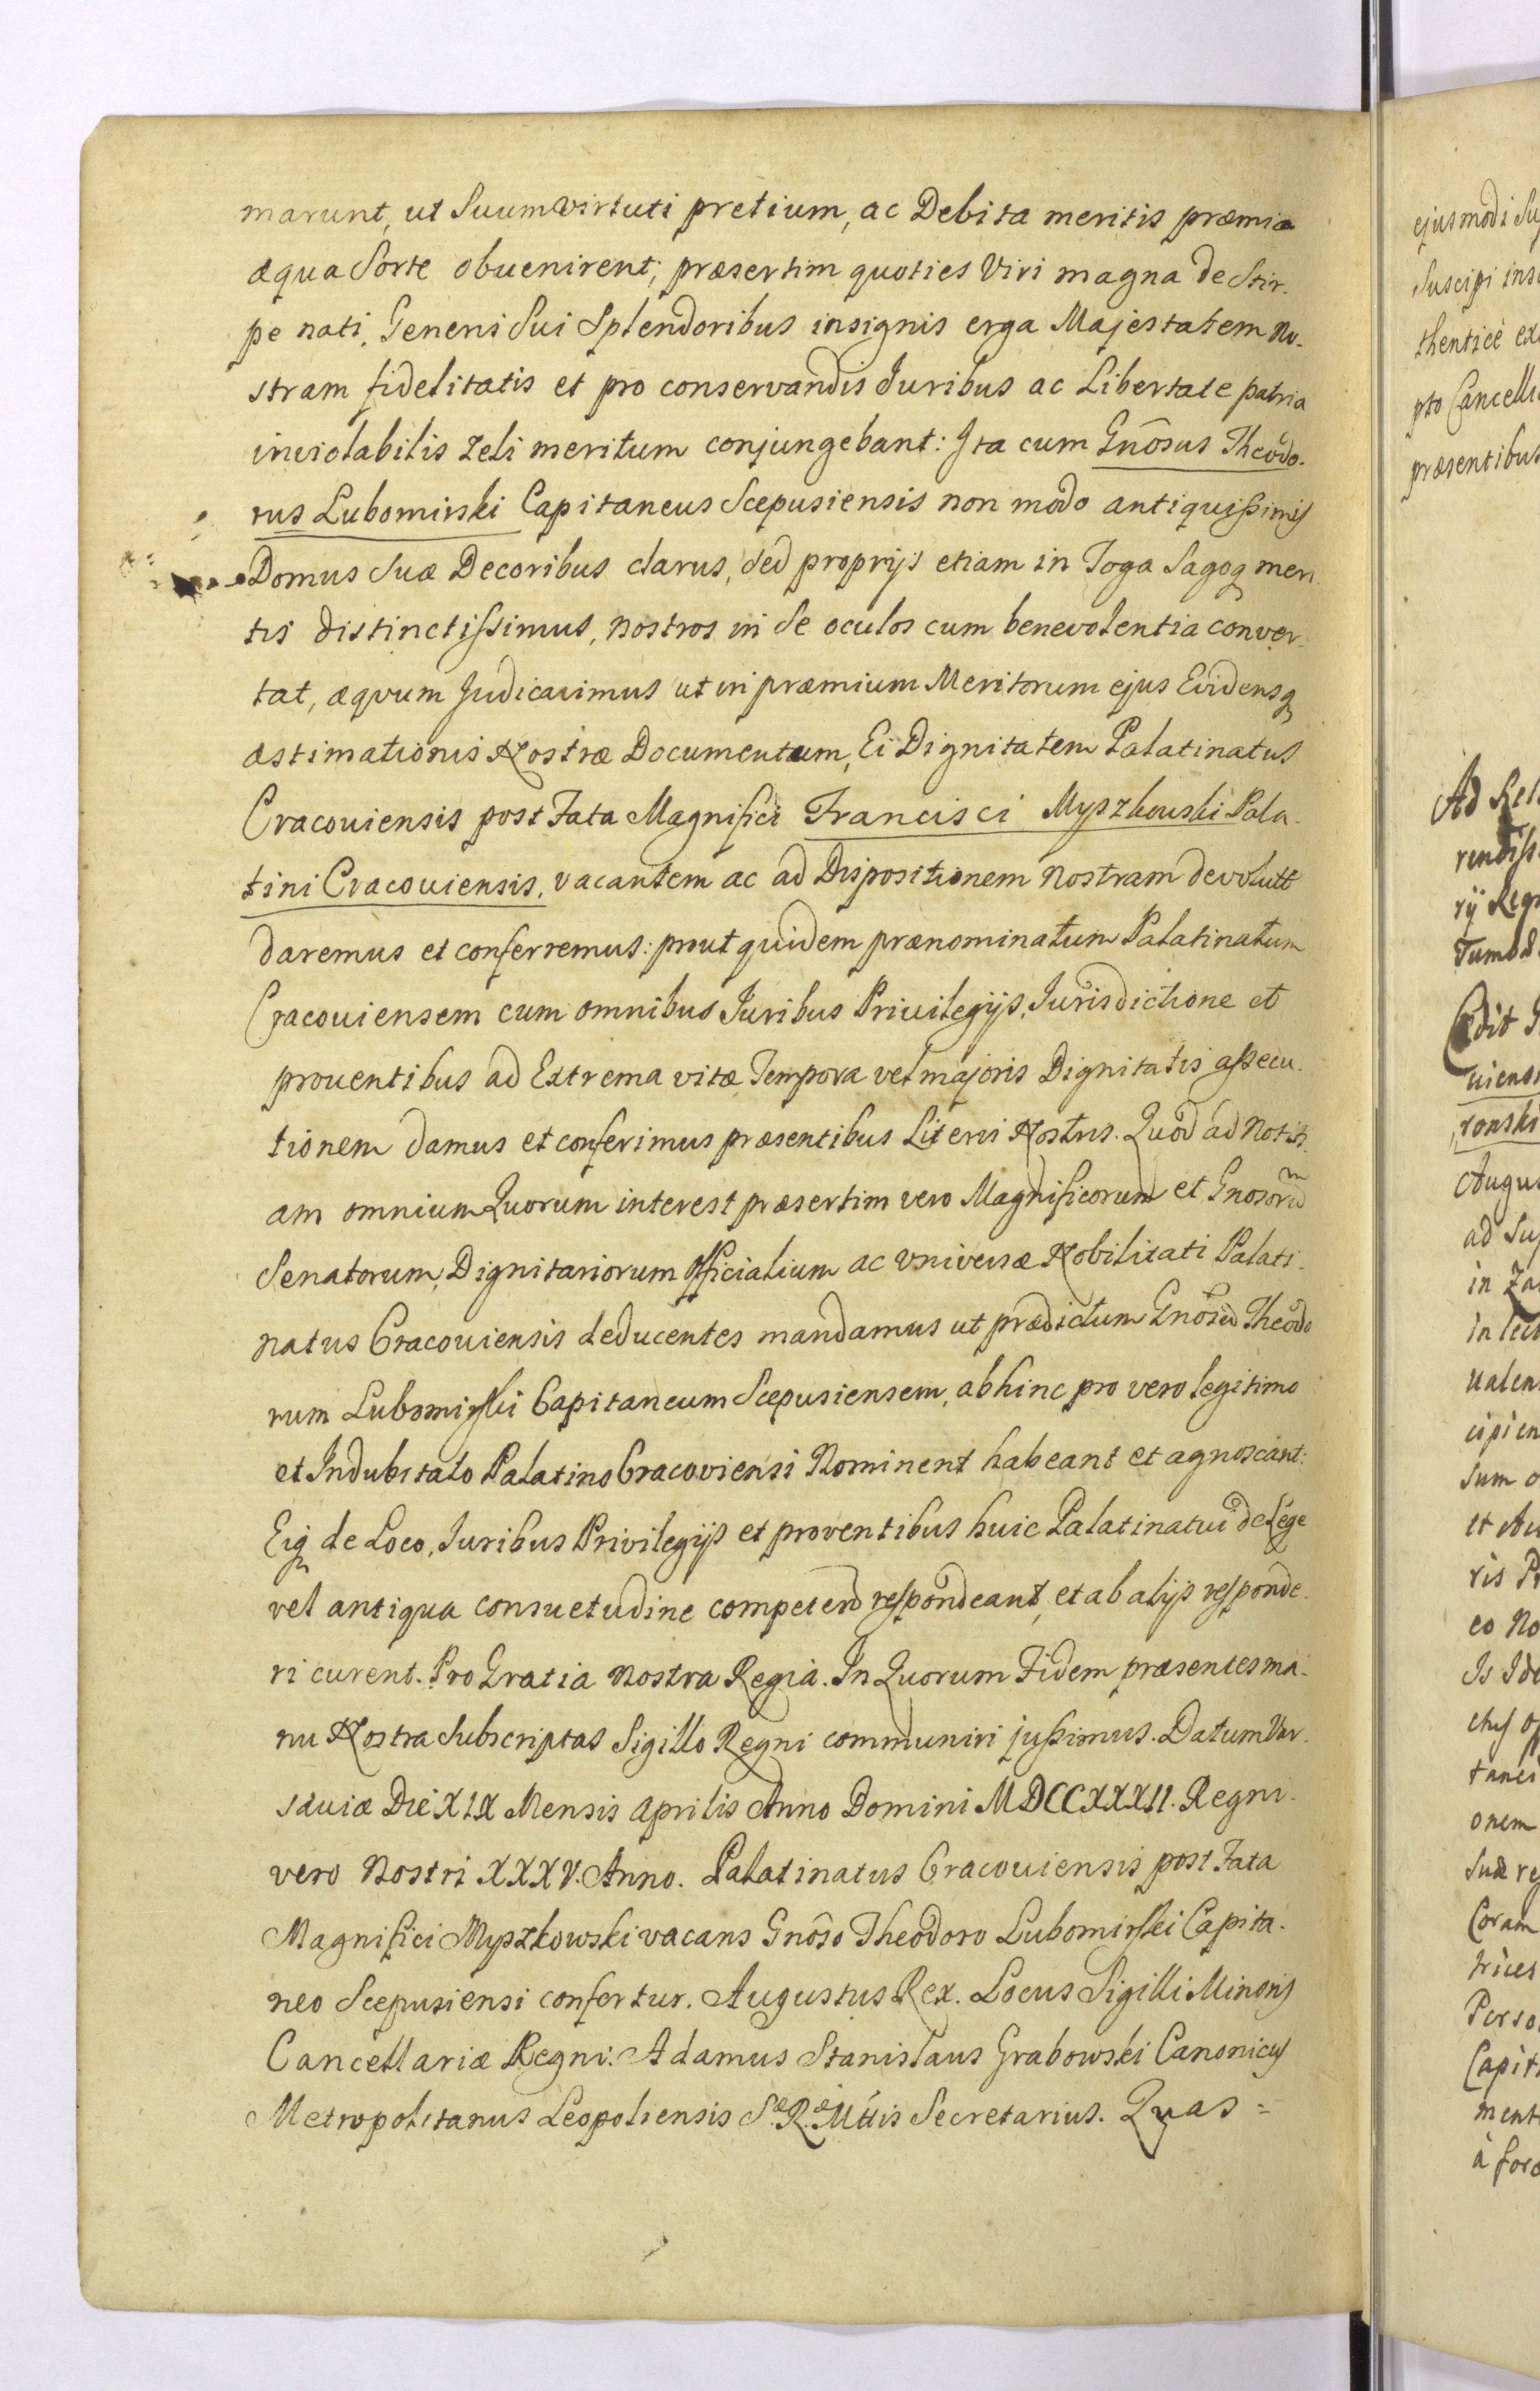 marunt, ut Suum virtuti pretium, ac Debita meritis præmia
æqua Sorte obuenirent; præsertim quoties Viri magna de Stir-
pe nati, Generis Sui Splendoribus insignis erga Majestatem No-
stram fidelitatis et pro conservandis Juribus ac Libertate patria
inviolabilis zeli meritum conjungebant: Ita cum Gnôsus Theodo-
rus Lubomirski Capitaneus Scepusiensis non modo antiquissimis
Domus Suæ Decoribus clarus, sed proprijs etiam in Toga Sagoq meri
tis distinctissimus, nostros in Se oculos cum benevolentia conver-
tat, æqvum Judicavimus ut in præmium Meritorum ejus Evidensq
æstimationis Nostræ Documentum, Ei Dignitatem Palatinatus
Cracoviensis post Fata Magnifici Francisci Myszkowski Pala-
tini Cracouiensis, vacantem ac ad Dispositionem nostram devolutt
daremus et conferremus: prout quidem prænominatum Palatinatum
Cracouiensem cum omnibus Juribus Privilegijs, Jurisdictione et
prouentibus ad Extrema vitæ Tempora vel majoris Dignitatis assecu-
tionem damus et conferimus præsentibus Literis Nostris. Quod ad Notiti-
am omnium Quorum interest præsertim vero Magnificorum et Gnosorum
Senatorum, Dignitariorum Officialium ac Vniversæ Nobilitati Palati-
natus Cracouiensis deducentes mandamus ut prædictum Gnôsũ Theodo
rum Lubomirski Capitaneum Scepusiensem, abhinc pro vero legitimo
et Indubitato Palatino Cracoviensi Nominent habeant et agnoscant:
Eiq de Loco, Juribus Privilegijs et proventibus huic Palatinatui de Lege
vel antiqua consuetudine competen respondeant, et ab alijs responde-
ri curent. Pro Gratia nostra Regia. In Quorum Fidem præsentes ma-
nu Nostra Subscriptas Sigillo Regni communiri jussimus. Datum Var-
saviæ Die XIX Mensis Aprilis Anno Domini MDCCXXXII. Regni-
vero Nostri XXXV. Anno. Palatinatus Cracouiensis post Fata
Magnifici Myszkowski vacans Gnôso Theodoro Lubomirski Capita-
neo Scepusiensi confertur. Augustus Rex. Locus Sigilli Minoris
Cancellariæ Regni. Adamus Stanislaus Grabowski Canonicus
Metropolitanus Leopoliensis S. R. Mttis Secretarius. Quas =
ejusmodi
Suscipi
thentice
pto
præsentibus
Ad